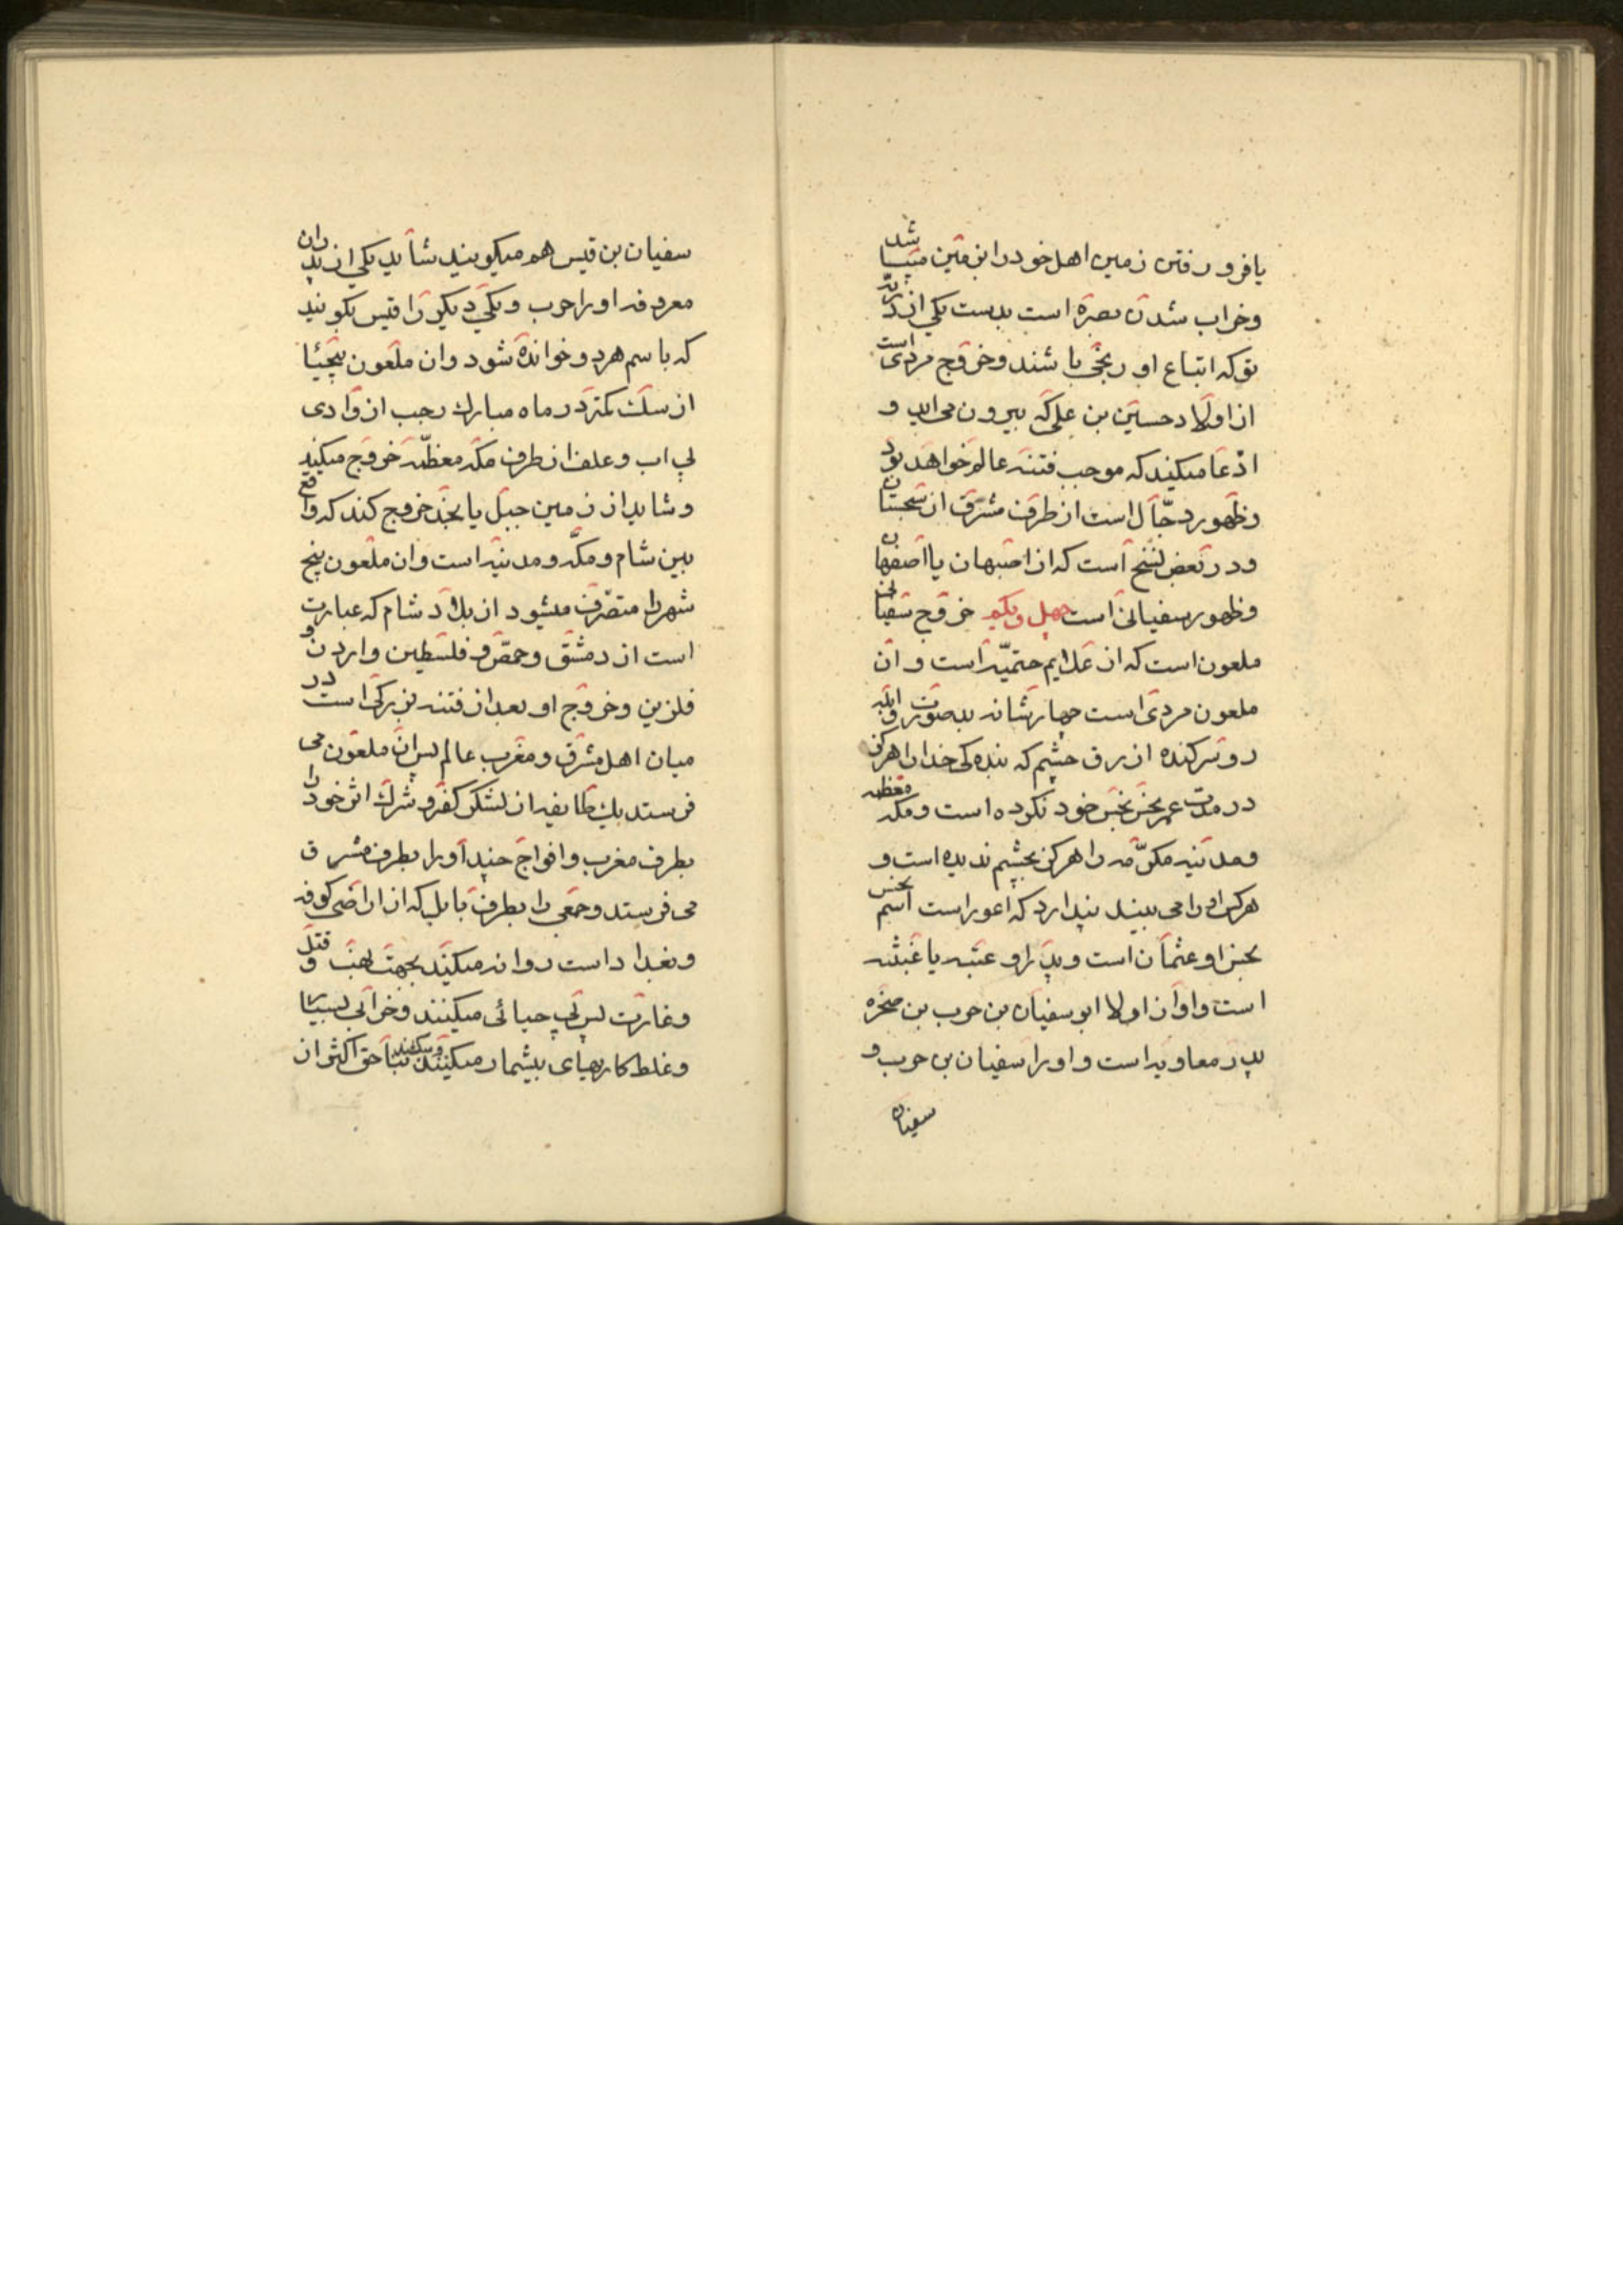 یا فرو رفتن زمین اهل خود را این زمین میباشد
و خراب شدن بصره است بدست یکی از ذریّه
تو که اتباع او زنجی باشند و خروج مردی است
از اولاد حسین بن علی که بیرون می اید و
ادّعا میکند که موجب فتنه عالم خواهد بود
و ظهور دجّال است از طرف مشرق از سجستان
و در بعض نسخ است که از اصبهان یا اصفهان
و ظهور سفیانی است چهل و یکم خروج سفیانی
ملعون است که از علایم حتمیّه است و ان
ملعون مردی است چهارشانه بدصورت و ابله
رو ترکنده ازرق چشم که بندکی خدا را هرکز
در مدّت عمر نجس نحس خود نکرده است و مکه معظمه
و مدینه مکرّمه را هرکز بچشم ندیده است و
هرکس او را می بیند پندارد که اعور است اسم نجس
نجس او عثمان است و پدر او عتبه یا عنبثه
است و او از اولاد ابوسفیان بن حرب بن صخره
پدر معاویه است و او را سفیان بن حرب و
سفیان
سفیان بن قیس هم میکویند شاید یکی از پدران
معروفه او را حرب و یکی دیکر را قیس بکویند
که باسم هر دو خوانده شود و ان ملعون بیحیا
از سک کمتر در ماه مبارک رجب از وادی
بی اب و علف از طرف مکه معظّمه خروج میکند
و شاید از زمین جبل یا نجد خروج کند که واقع
بین شام و مکّه و مدینه است و ان ملعون پنج
شهر را متصرّف میشود از بلاد شام که عبارت
است از دمشق و حمص و فلسطین و اردن و
قلزین و خروج او بعد از فتنه بزرکی است در
میان اهل مشرق و مغرب عالم پس ان ملعون می
فرستد یک طایفه از لشکر کفر و شرک اثر خود را
بطرف مغرب و افواج چند او را بطرف مشرق
می فرستد و جمعی را بطرف بابل که از اراضی کوفه
و بغداد است روانه میکند بجهت نهب و قتل
و غارت پس بی حیائی میکنند و خرابی بسیار
و غلط کاریهای بیشمار میکنند و میکشند بناحق اکثر از